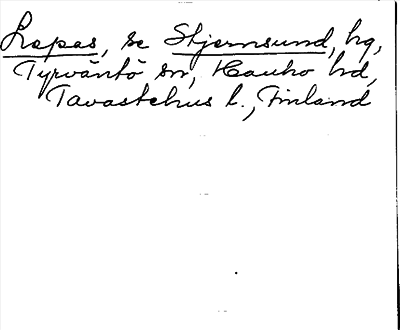 Lapas, se Stjernsund, hg,
Tyrväntö sn, Hauho hd,
Tavastehus l., Finland